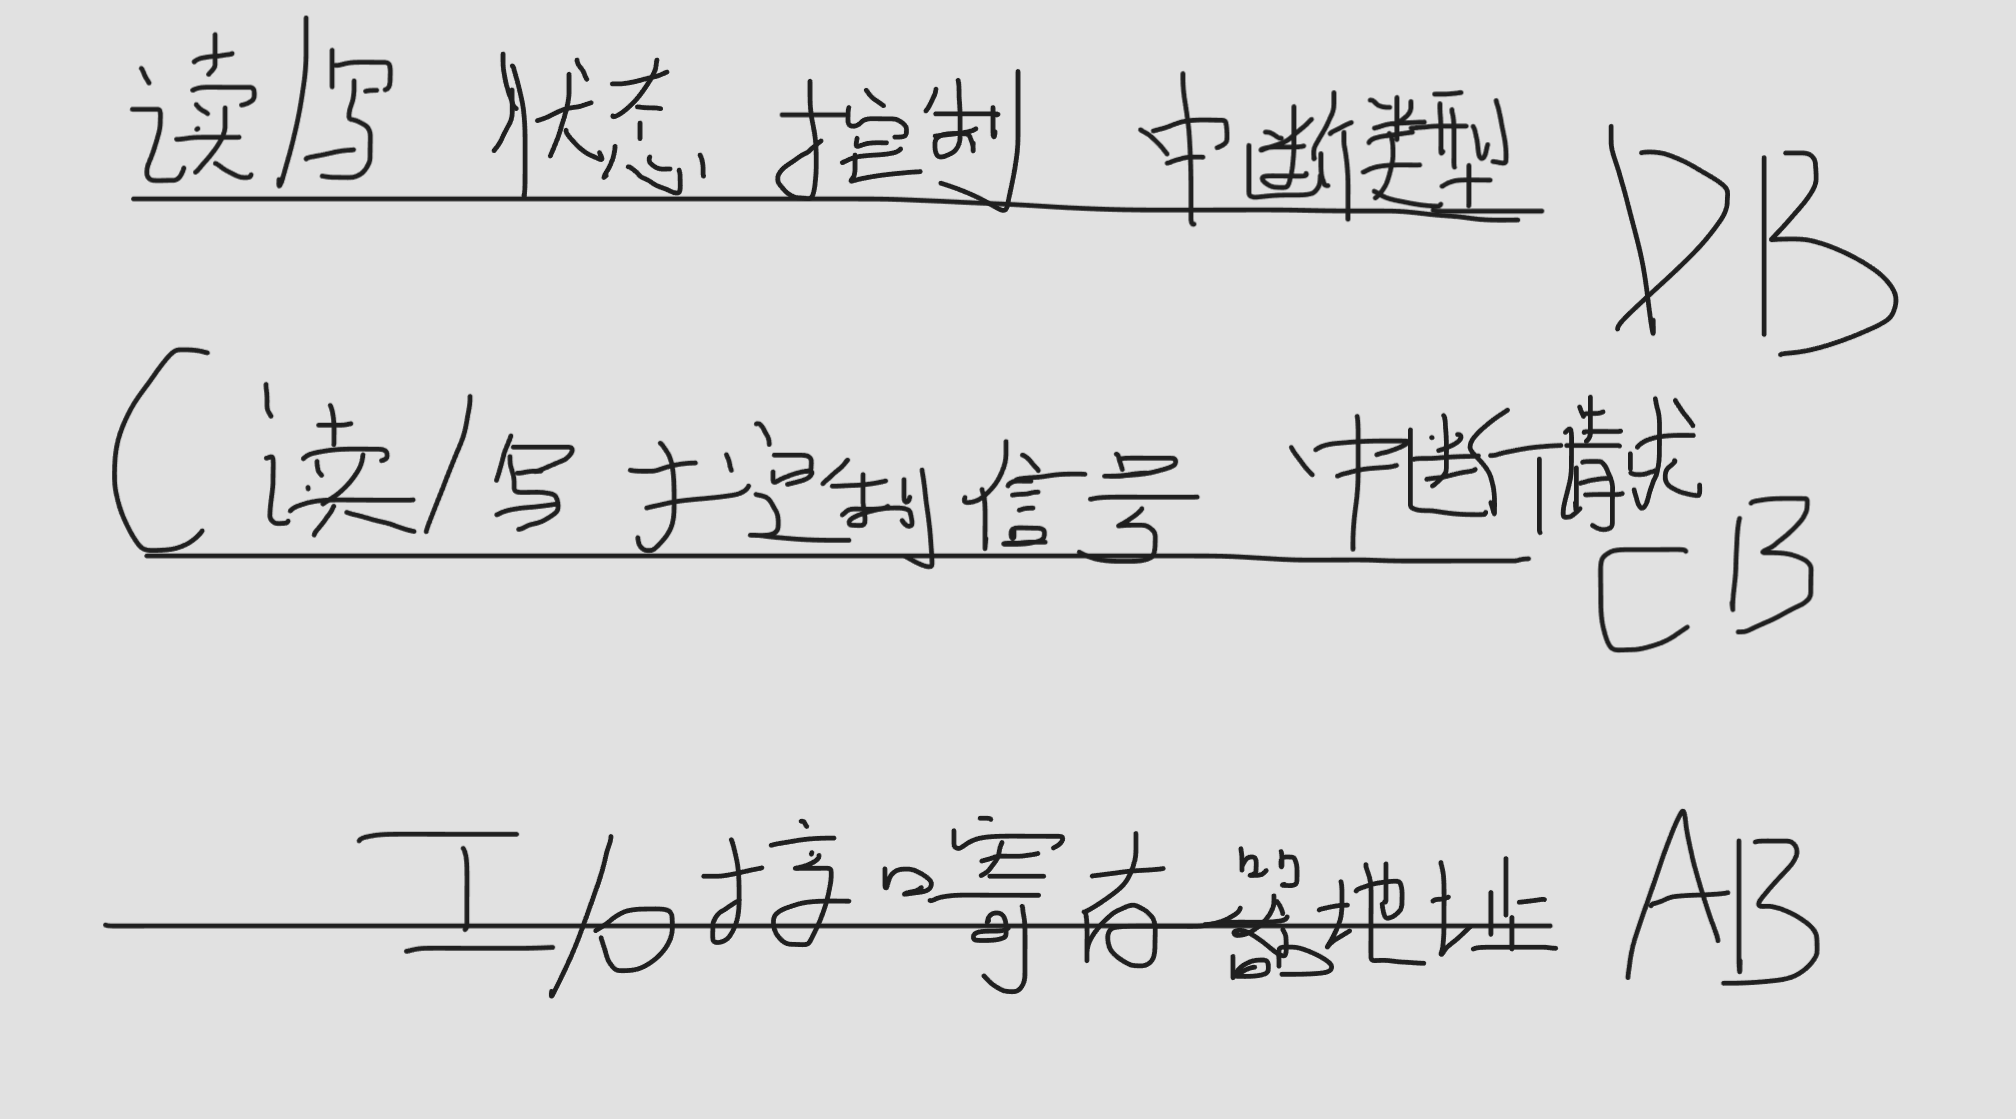 读/写 状态 控制 中断类型 DB
(读/写 控制信号 中断请求 CB
I/O接口寄存器地址 AB